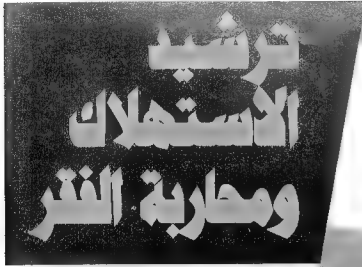 ترشيد
الاستهلاك
ومحاربة الفقر